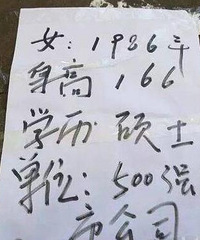 女：1986年
身高 166
学历 硕士
单位：500强
公司